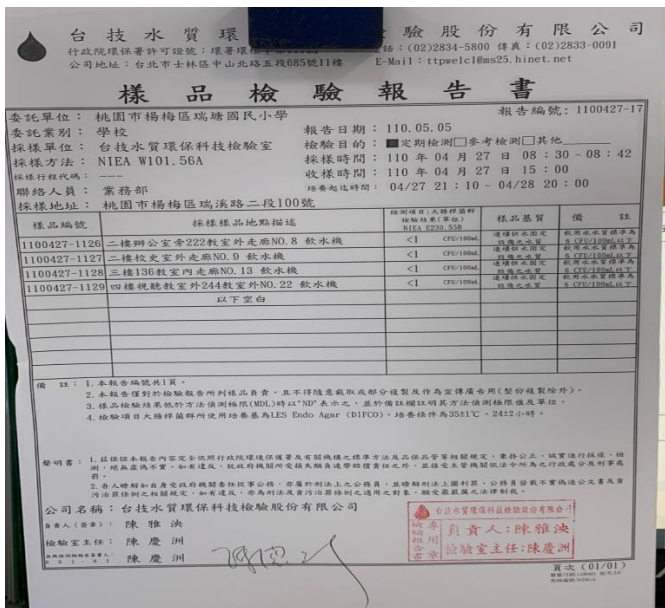 台技水質環 驗股份有限公司
行政院環保署許可證號：環署環
電話：(02)2834-5800 傳真：(02)2833-0091
公司地址：台北市士林區中山北路五段685號11樓 E-Mail：ttpwelcl@ms25.hinet.net
樣品檢驗報告書
報告編號：1100427-17
委託單位：桃園市楊梅區瑞塘國民小學
委託業別：學校 報告日期：110.05.05
採樣單位：台技水質環保科技檢驗室 檢驗目的：■定期檢測□參考檢測□其他
採樣方法：NIEA W101.56A 採樣時間：110 年 04 月 27 日 08：30~08：42
採樣行程代碼：--- 收樣時間：110 年 04 月 27 日 15：00
聯絡人員：業務部 培養起迄時間：04/27 21：10~04/28 20：00
採樣地址：桃園市楊梅區瑞溪路二段100號
樣品編號 採樣樣品地點描述 檢測項目：大腸桿菌群 檢驗結果(單位) NIEA E230.55B 樣品基質 備註
1100427-1126 二樓辦公室旁222教室外走廊NO.8 飲水機 <1 CFU/100mL 連續供水固定設備之水質 飲用水水質標準為 6 CFU/100mL以下
1100427-1127 二樓校史室外走廊NO.9 飲水機 <1 CFU/100mL 連續供水固定設備之水質 飲用水水質標準為 6 CFU/100mL以下
1100427-1128 三樓136教室內走廊NO.13 飲水機 <1 CFU/100mL 連續供水固定設備之水質 飲用水水質標準為 6 CFU/100mL以下
1100427-1129 四樓視聽教室外244教室外NO.22 飲水機 <1 CFU/100mL 連續供水固定設備之水質 飲用水水質標準為 6 CFU/100mL以下
以下空白
備 註：1.本報告編號共1頁。
2.本報告僅對於檢驗報告所列樣品負責，且不得隨意截取或部分複製及作為宣傳廣告用(整份複製除外)。
3.樣品檢驗結果低於方法偵測極限(MDL)時以"ND"表示之，並於備註欄註明其方法偵測極限值及單位。
4.檢驗項目大腸桿菌群所使用培養基為LES Endo Agar (DIFCO)，培養條件為35±1℃、24±2小時。
聲明書：1.茲保證本報告內容完全依照行政院環境保護署及有關機構之標準方法及品保品管等相關規定，秉持公正、誠實進行採樣、檢
測，絕無虛偽不實，如有違反，就政府機關所受損失願負連帶賠償責任之外，並接受主管機關依法令所為之行政處分及刑事處
罰。
2.吾人瞭解如自身受政府機關委任從事公務，亦屬於刑法上之公務員，並瞭解刑法上圖利罪、公務員登載不實偽造公文書及貪
污治罪條例之相關規定，如有違反，亦為刑法及貪污治罪條例之適用之對象，願受最嚴厲之法律制裁。
公司名稱：台技水質環保科技檢驗股份有限公司
負責人(簽章)：陳雅泱
檢驗室主任：陳慶洲
陳慶洲
台技水質環保科技檢驗股份有限公司
檢驗報告書專用章
負責人：陳雅泱
檢驗室主任：陳慶洲
頁次 (01/01)